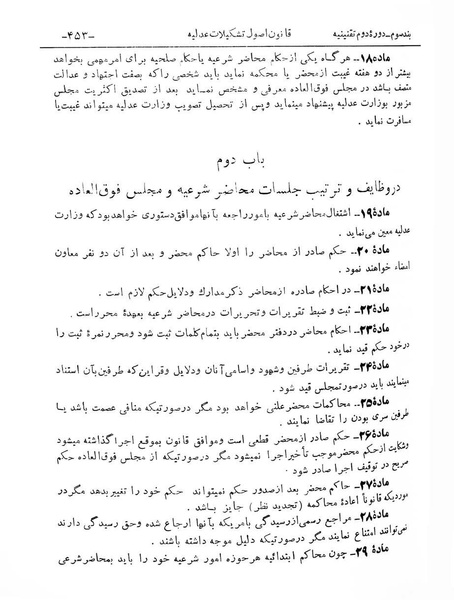 بندسوم ـ دورهٔ دوم تقنینیه قانون اصول تشکیلات عدلیه ـ۴۵۳ـ
مادهٔ۱۸ـ هرگاه یکی ازحکام محاضر شرعیه یاحکام صلحیه برای امرمهمی بخواهد
بیشتر از دو هفته غیبت ازمحضر یا محکمه نماید باید شخصی راکه بصفت اجتهاد و عدالت
متصف باشد در مجلس فوق‌العاده معرفی و مشخص نماید بعد از تصدیق اکثریت مجلس
مزبور بوزارت عدلیه پیشنهاد مینماید و پس از تحصیل تصویب وزارت عدلیه میتواند غیبت‌یا
مسافرت نماید .
باب دوم
دروظایف و ترتیب جلسات محاضر شرعیه و مجلس فوق‌العاده
مادهٔ۱۹ـ اشتغال‌محاضرشرعیه بامورراجعه بآنهاموافق‌دستوری خواهدبودکه وزارت
عدلیه معین می‌نماید .
مادهٔ ۲۰ـ حکم صادر از محضر را اولا حاکم محضر و بعد از آن دو نفر معاون
امضاء خواهند نمود .
مادهٔ۲۱ـ در احکام صادره ازمحاضر ذکرمدارك ودلایل‌حکم لازم است .
مادهٔ۲۲ـ ثبت و ضبط تقریرات وتحریرات درمحاضر شرعیه بعهدهٔ محرراست.
مادهٔ۲۳ـ احکام محاضردردفتر محضرباید بتمام‌کلمات ثبت شود ومحررنمرهٔ ثبت را
درخود حکم قید نماید .
مادهٔ ۲۴ـ تقریرات طرفین وشهود واسامی‌آنان ودلایل وقراینی‌که طرفین‌بآن استناد
مینمایند باید درصورتمجلس قید شود .
مادهٔ۲۵ـ محاکمات محضرعلنی خواهد بود مگر درصورتیکه منافی عصمت باشد یا
طرفین سری بودن را تقاضا نمایند .
مادهٔ۲۶ـ حکم صادر ازمحضر قطعی است وموافق قانون بموقع اجراگذاشته میشود
وشکایت ازحکم‌محضرموجب تأخیراجرا نمیشود مگر درصورتیکه از مجلس فوق‌العاده حکم
صریح در توقیف اجرا صادر شود .
مادهٔ۲۷ـ حاکم محضر بعد ازصدور حکم نمیتواند حکم خود را تغییربدهد مگردر
موردیکه قانوناً اعادهٔ محاکمه (تجدید نظر) جایز باشد .
مادهٔ۲۸ـ مراجع رسمی‌ازرسیدگی بامریکه بآنها ارجاع شده وحق رسیدگی دارند
نمی‌توانند امتناع نمایند مگر درصورتیکه دلیل موجه داشته باشند .
مادهٔ ۲۹ـ چون محاکم ابتدائیه هرحوزه امور شرعیه خود را باید بمحاضرشرعی